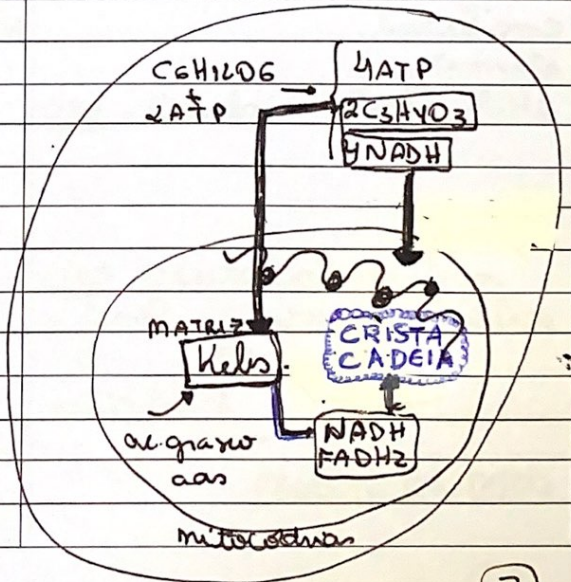 C6H12O6 → 4ATP
+
2ATP
2C3H4O3
4NADH
MATRIZ
Kebs
CRISTA
CADEIA
NADH
FADH2
ac. graxo
aas
mitocôdrias